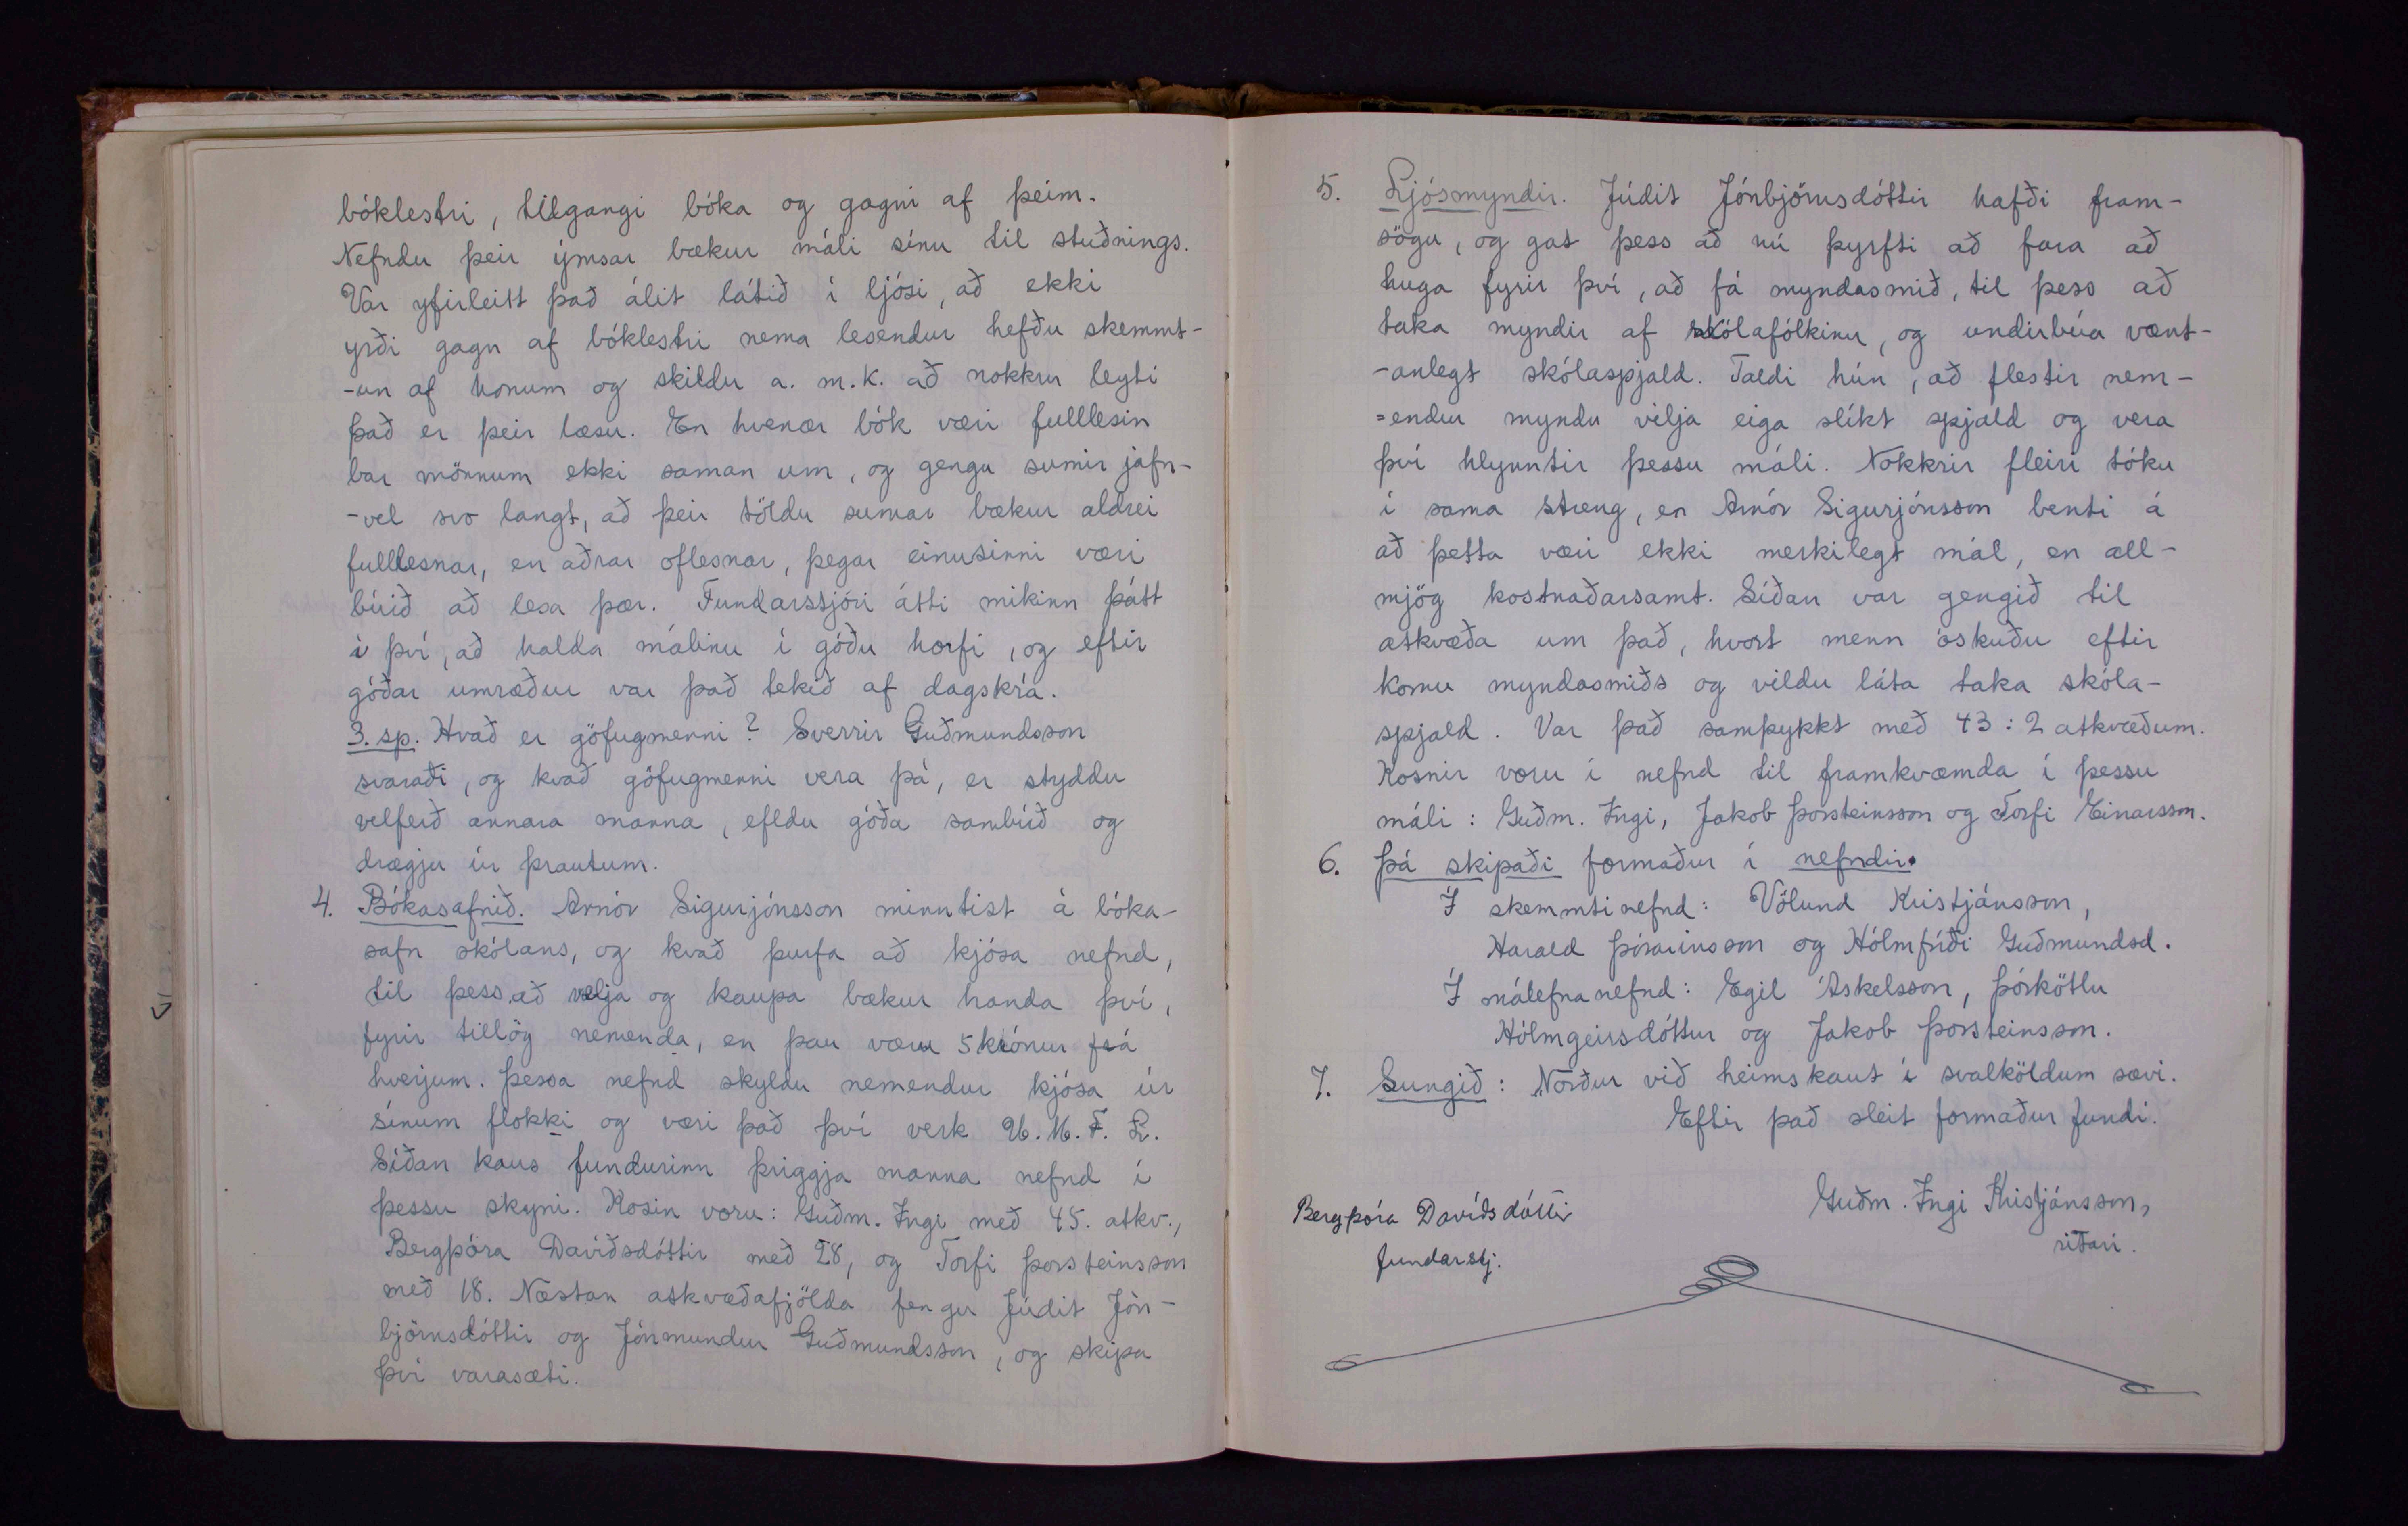 bóklestri, tilgangi bóka og gagni af þeim.
Nefndu þeir ýmsar bækur máli sínu til stuðnings.
Var yfirleitt það álit látið í ljósi, að ekki
yrði gagn af bóklestri nema lesendur hefðu skemmt-
-un af honum og skildu a. m. k. að nokkru leyti
það er þeir læsu. En hvenær bók væri fulllesin
bar mönnum ekki saman um, og gengu sumir jafn-
-vel svo langt, að þeir töldu sumar bækur aldrei
fulllesnar, en aðrar oflesnar, þegar einusinni væri
búið að lesa þær. Fundarstjóri átti mikinn þátt
í því, að halda málinu í góðu horfi, og eftir
góðar umræður var það tekið af dagskrá.
3. sp. Hvað er göfugmenni? Sverrir Guðmundsson
svaraði, og kvað göfugmenni vera þá, er styddu
velferð annara manna, efldu góða sambúð og
drægju úr þrautum.
4. Bókasafnið. Arnór Sigurjónsson minntist á bóka-
safn skólans, og kvað þurfa að kjósa nefnd,
til þess að velja og kaupa bækur handa því,
fyrir tillög nemenda, en þau væru 5 krónur frá
hverjum. Þessa nefnd skyldu nemendur kjósa úr
sínum flokki og væri það því verk U. M. F. L.
Síðan kaus fundurinn þriggja manna nefnd í
þessu skyni. Kosin voru: Guðm. Ingi með 45. atkv.,
Bergþóra Davíðsdóttir með 28, og Torfi Þorsteinsson
með 18. Næstan atkvæðafjölda fengu Júdit Jón-
björnsdóttir og Jónmundur Guðmundsson, og skipa
því varasæti.
5. Ljósmyndir. Júdit Jónbjörnsdóttir hafði fram-
sögu, og gat þess að nú þyrfti að fara að
huga fyrir því, að fá myndasmið, til þess að
taka myndir af skólafólkinu, og undirbúa vænt-
-anlegt skólaspjald. Taldi hún, að flestir nem-
=endur myndu vilja eiga slíkt spjald og vera
því hlynntir þessu máli. Nokkrir fleiri tóku
í sama streng, en Arnór Sigurjónsson benti á
að þetta væri ekki merkilegt mál, en all-
mjög kostnaðarsamt. Síðan var gengið til
atkvæða um það, hvort menn óskuðu eftir
komu myndasmiðs og vildu láta taka skóla-
spjald. Var það samþykkt með 43 : 2 atkvæðum.
Kosnir voru í nefnd til framkvæmda í þessu
máli: Guðm. Ingi, Jakob Þorsteinsson og Torfi Einarsson.
6. Þá skipaði formaður í nefndir.
Í skemmtinefnd: Völund Kristjánsson,
Harald Þórarinsson og Hólmfríði Guðmundsd.
Í málefnanefnd: Egil Áskelsson, Þórkötlu
Hólmgeirsdóttur og Jakob Þorsteinsson.
7. Sungið: Norður við heimskaut í svalköldum sævi.
Eftir það sleit formaður fundi.
Guðm. Ingi Kristjánsson,
ritari.
Bergþóra Davíðsdóttir
fundarstj.